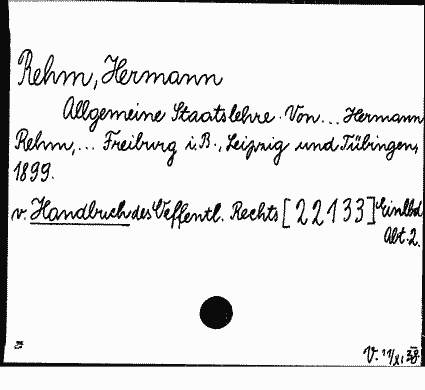 Rehm, Hermann
Allgemeine Staatslehre. Von... Hermann
Rehm,... Freiburg i. B., Leipzig und Tübingen,
1899.
v. Handbuch des Oeffentl. Rechts [22133] Einlbd
Abt. 2.
V. 11/XI 38